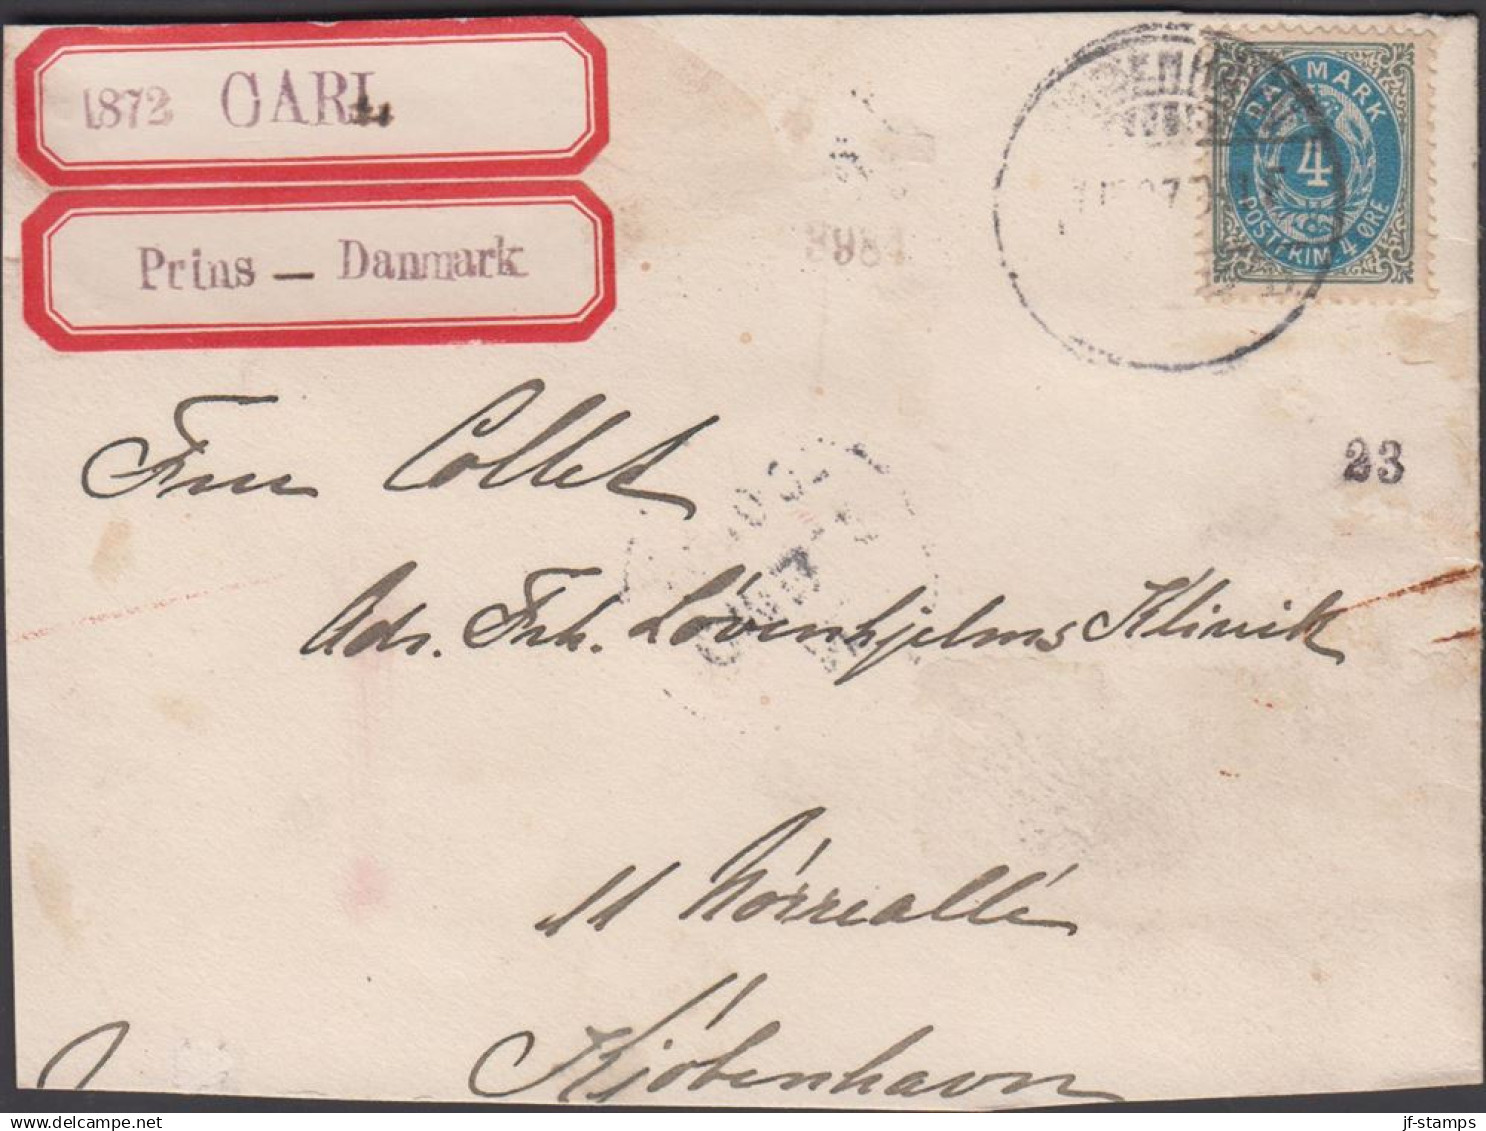 1872 CARL
Prins — Danmark
DANMARK
4
POSTFRIM. 4 ØRE
23
Fru Collet
Adr. Frk. Løvenhjelms Klinik
11 Nørreallé
Kjøbenhavn
jf-stamps